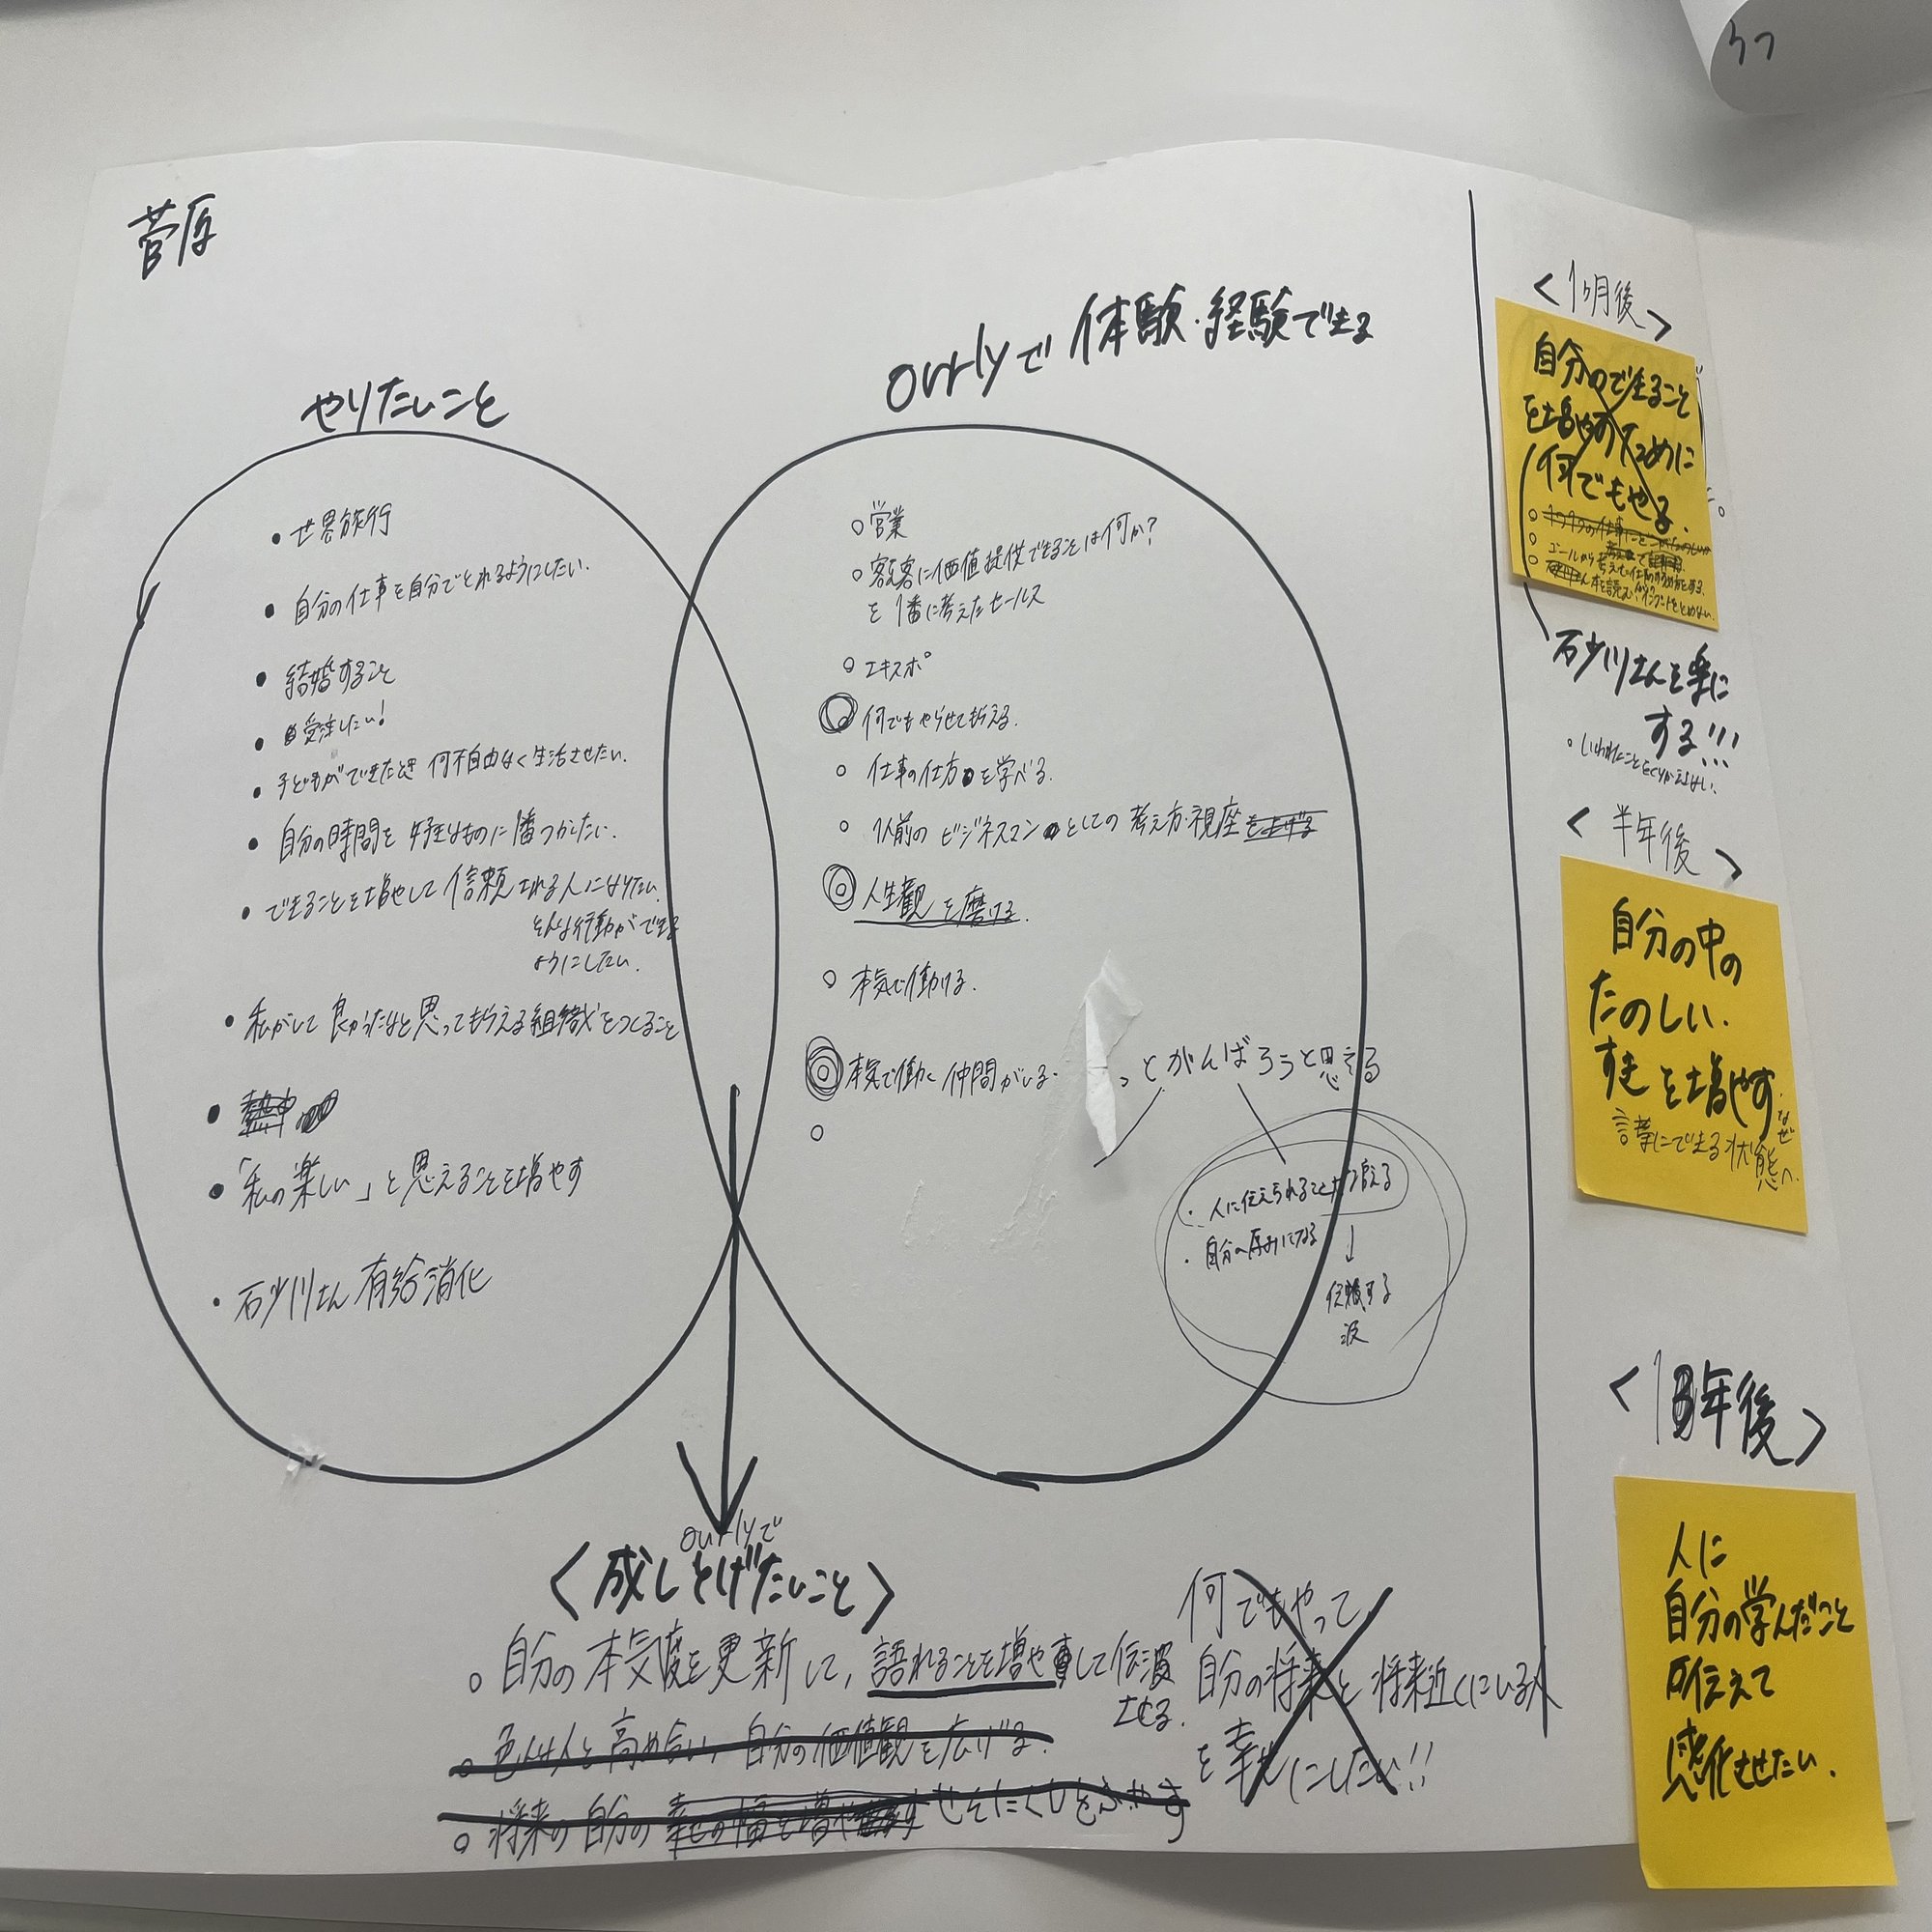 菅原
やりたいこと
・世界旅行
・自分の仕事を自分でとれるようにしたい.
・結婚すること
・受注したい!
・子どもができたとき 何不自由なく生活させたい.
・自分の時間を好きなものに1番つかいたい.
・できることを増やして信頼される人になりたい.
そんな行動ができる
ようにしたい.
・私がいて良かったなと思ってもらえる組織をつくること
・熱中
・「私の楽しい」と思えることを増やす
・石少川さん 有給消化
ourlyで 体験・経験できる
○営業
○顧客に価値提供できることは何か?
を1番に考えたセールス
○エキスポ
◎何でもやらせてもらえる.
○仕事の仕方を学べる.
○1人前のビジネスマンとしての考え方・視座を上げる
◎人生観を磨ける.
○本気で働ける.
◎本気で働く仲間がいる.
っとがんばろうと思える
・人に伝えられることが増える
・自分の厚みになる
↓
伝播する
波
ourlyで
<成しとげたいこと>
○自分の本気度を更新して,語れることを増やして伝波
させる.
○色んな人と高め合い,自分の価値観を広げる.
○将来の自分の幸せの幅を増やす
何でもやって
自分の将来と将来近くにいる人
を幸せにしたい!!
<1ヶ月後>
自分のできること
を増やすために
何でもやる.
石少川さんを楽に
する!!!
・いわれたことをくりかえさない.
<半年後>
自分の中の
たのしい.
すき を増やす.
なぜ
言葉にできる状態へ.
<1年後>
人に
自分の学んだこと
伝えて
感化させたい.